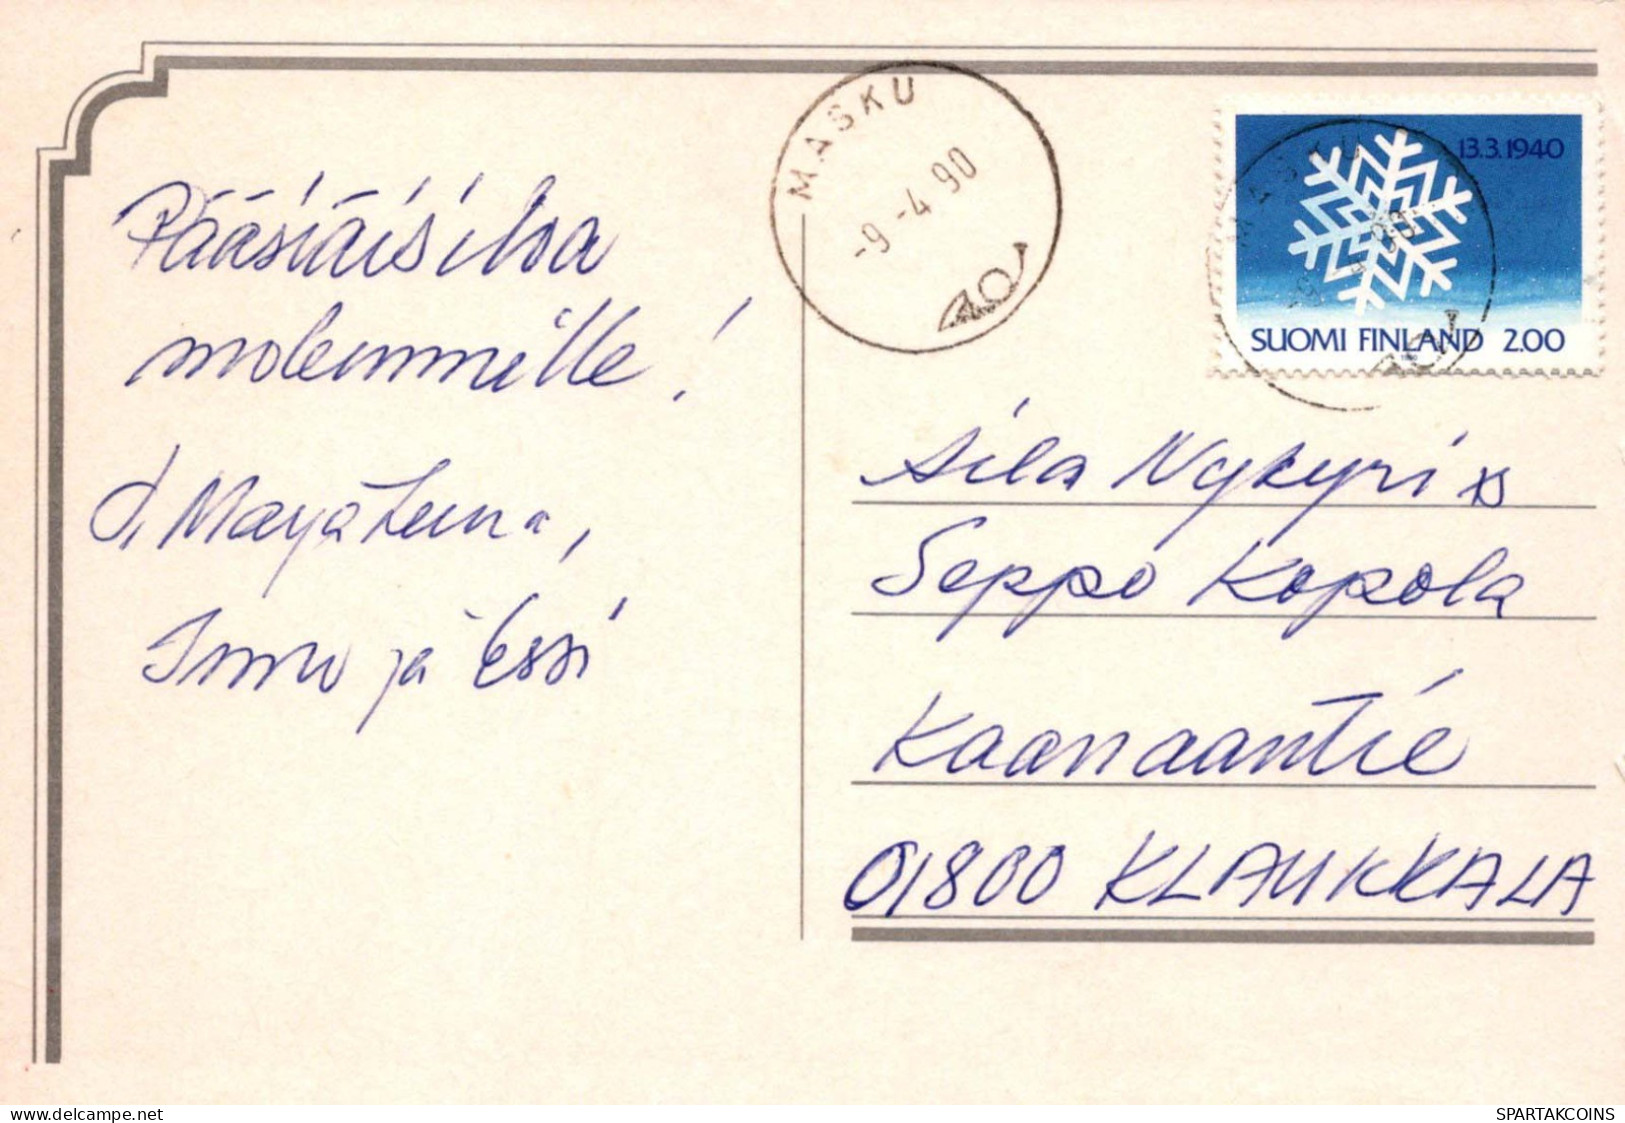 MASKU
-9.-4.90
13.3.1940
SUOMI FINLAND 2.00
Pääsiäisiloa
molemmille!
Aila Nykyri ja
Seppo Kopola
Kaanaantie
01800 KLAUKKALA
Immo ja Essi
delcampe.net
SPARTAKCOINS